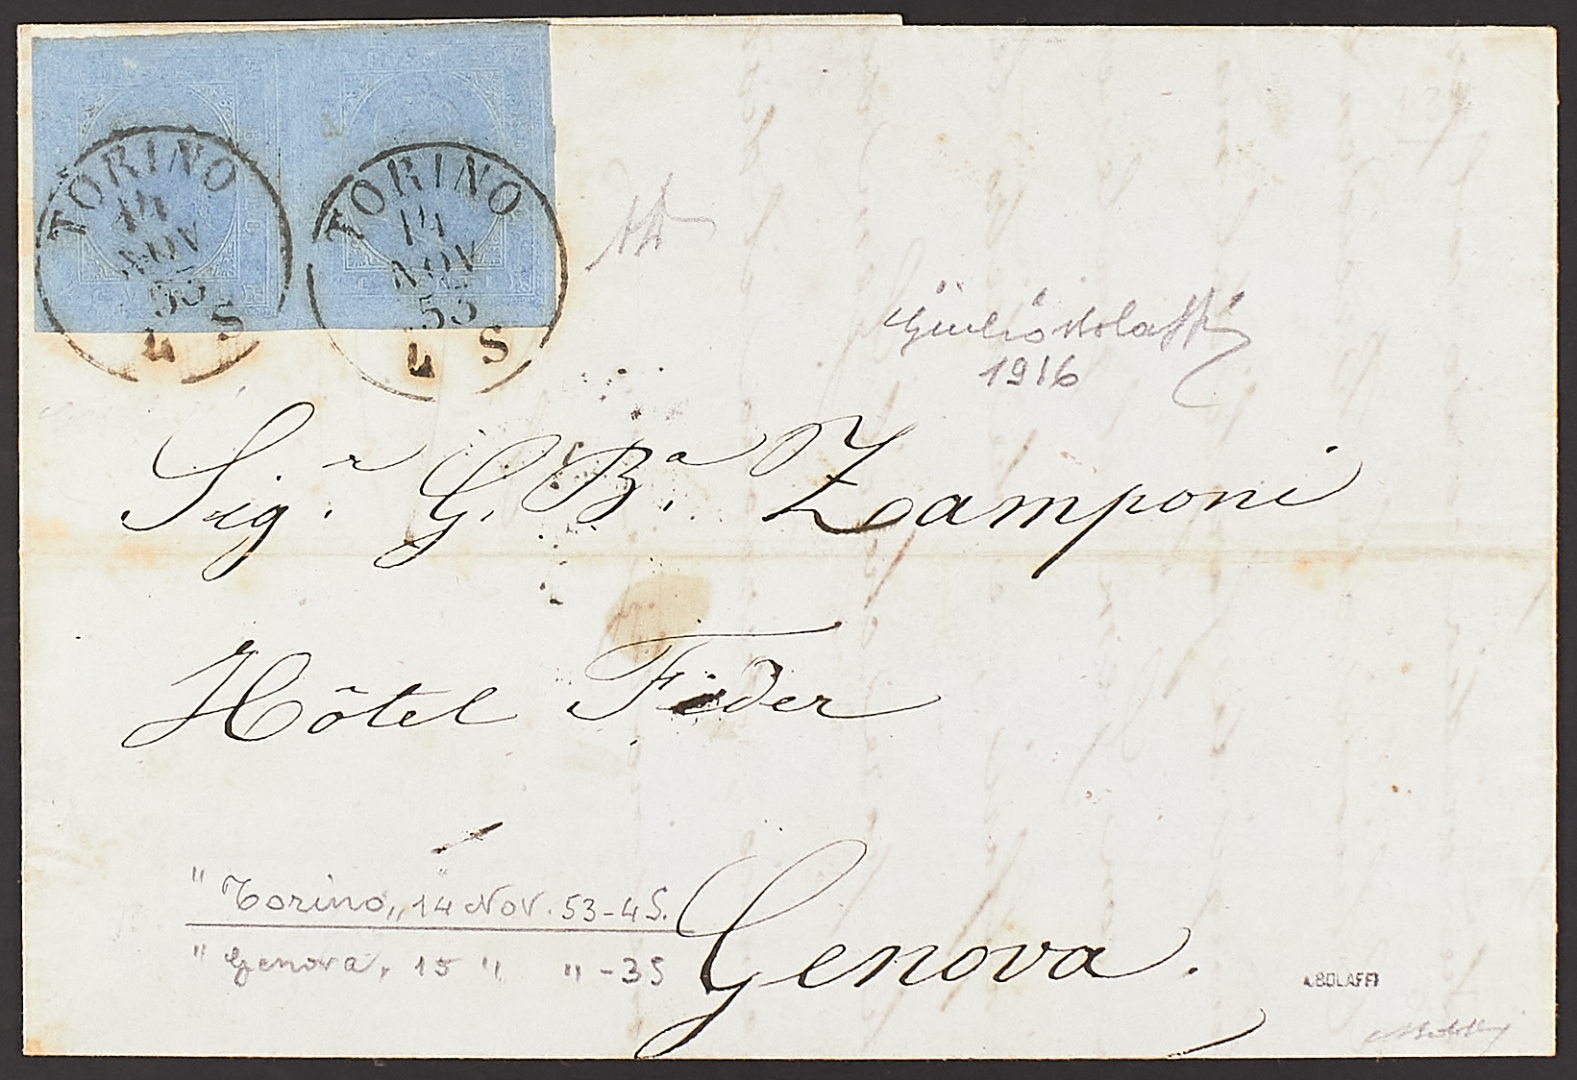 TORINO
14
NOV
53
4 S
TORINO
14
NOV
53
4 S
Giulio Bolaffi
1916
Sig.r G. Ba. Zamponi
Hôtel Feder
" Torino,, 14 Nov. 53 - 4 S.
" Genova, 15 " " - 3 S
Genova.
A. BOLAFFI